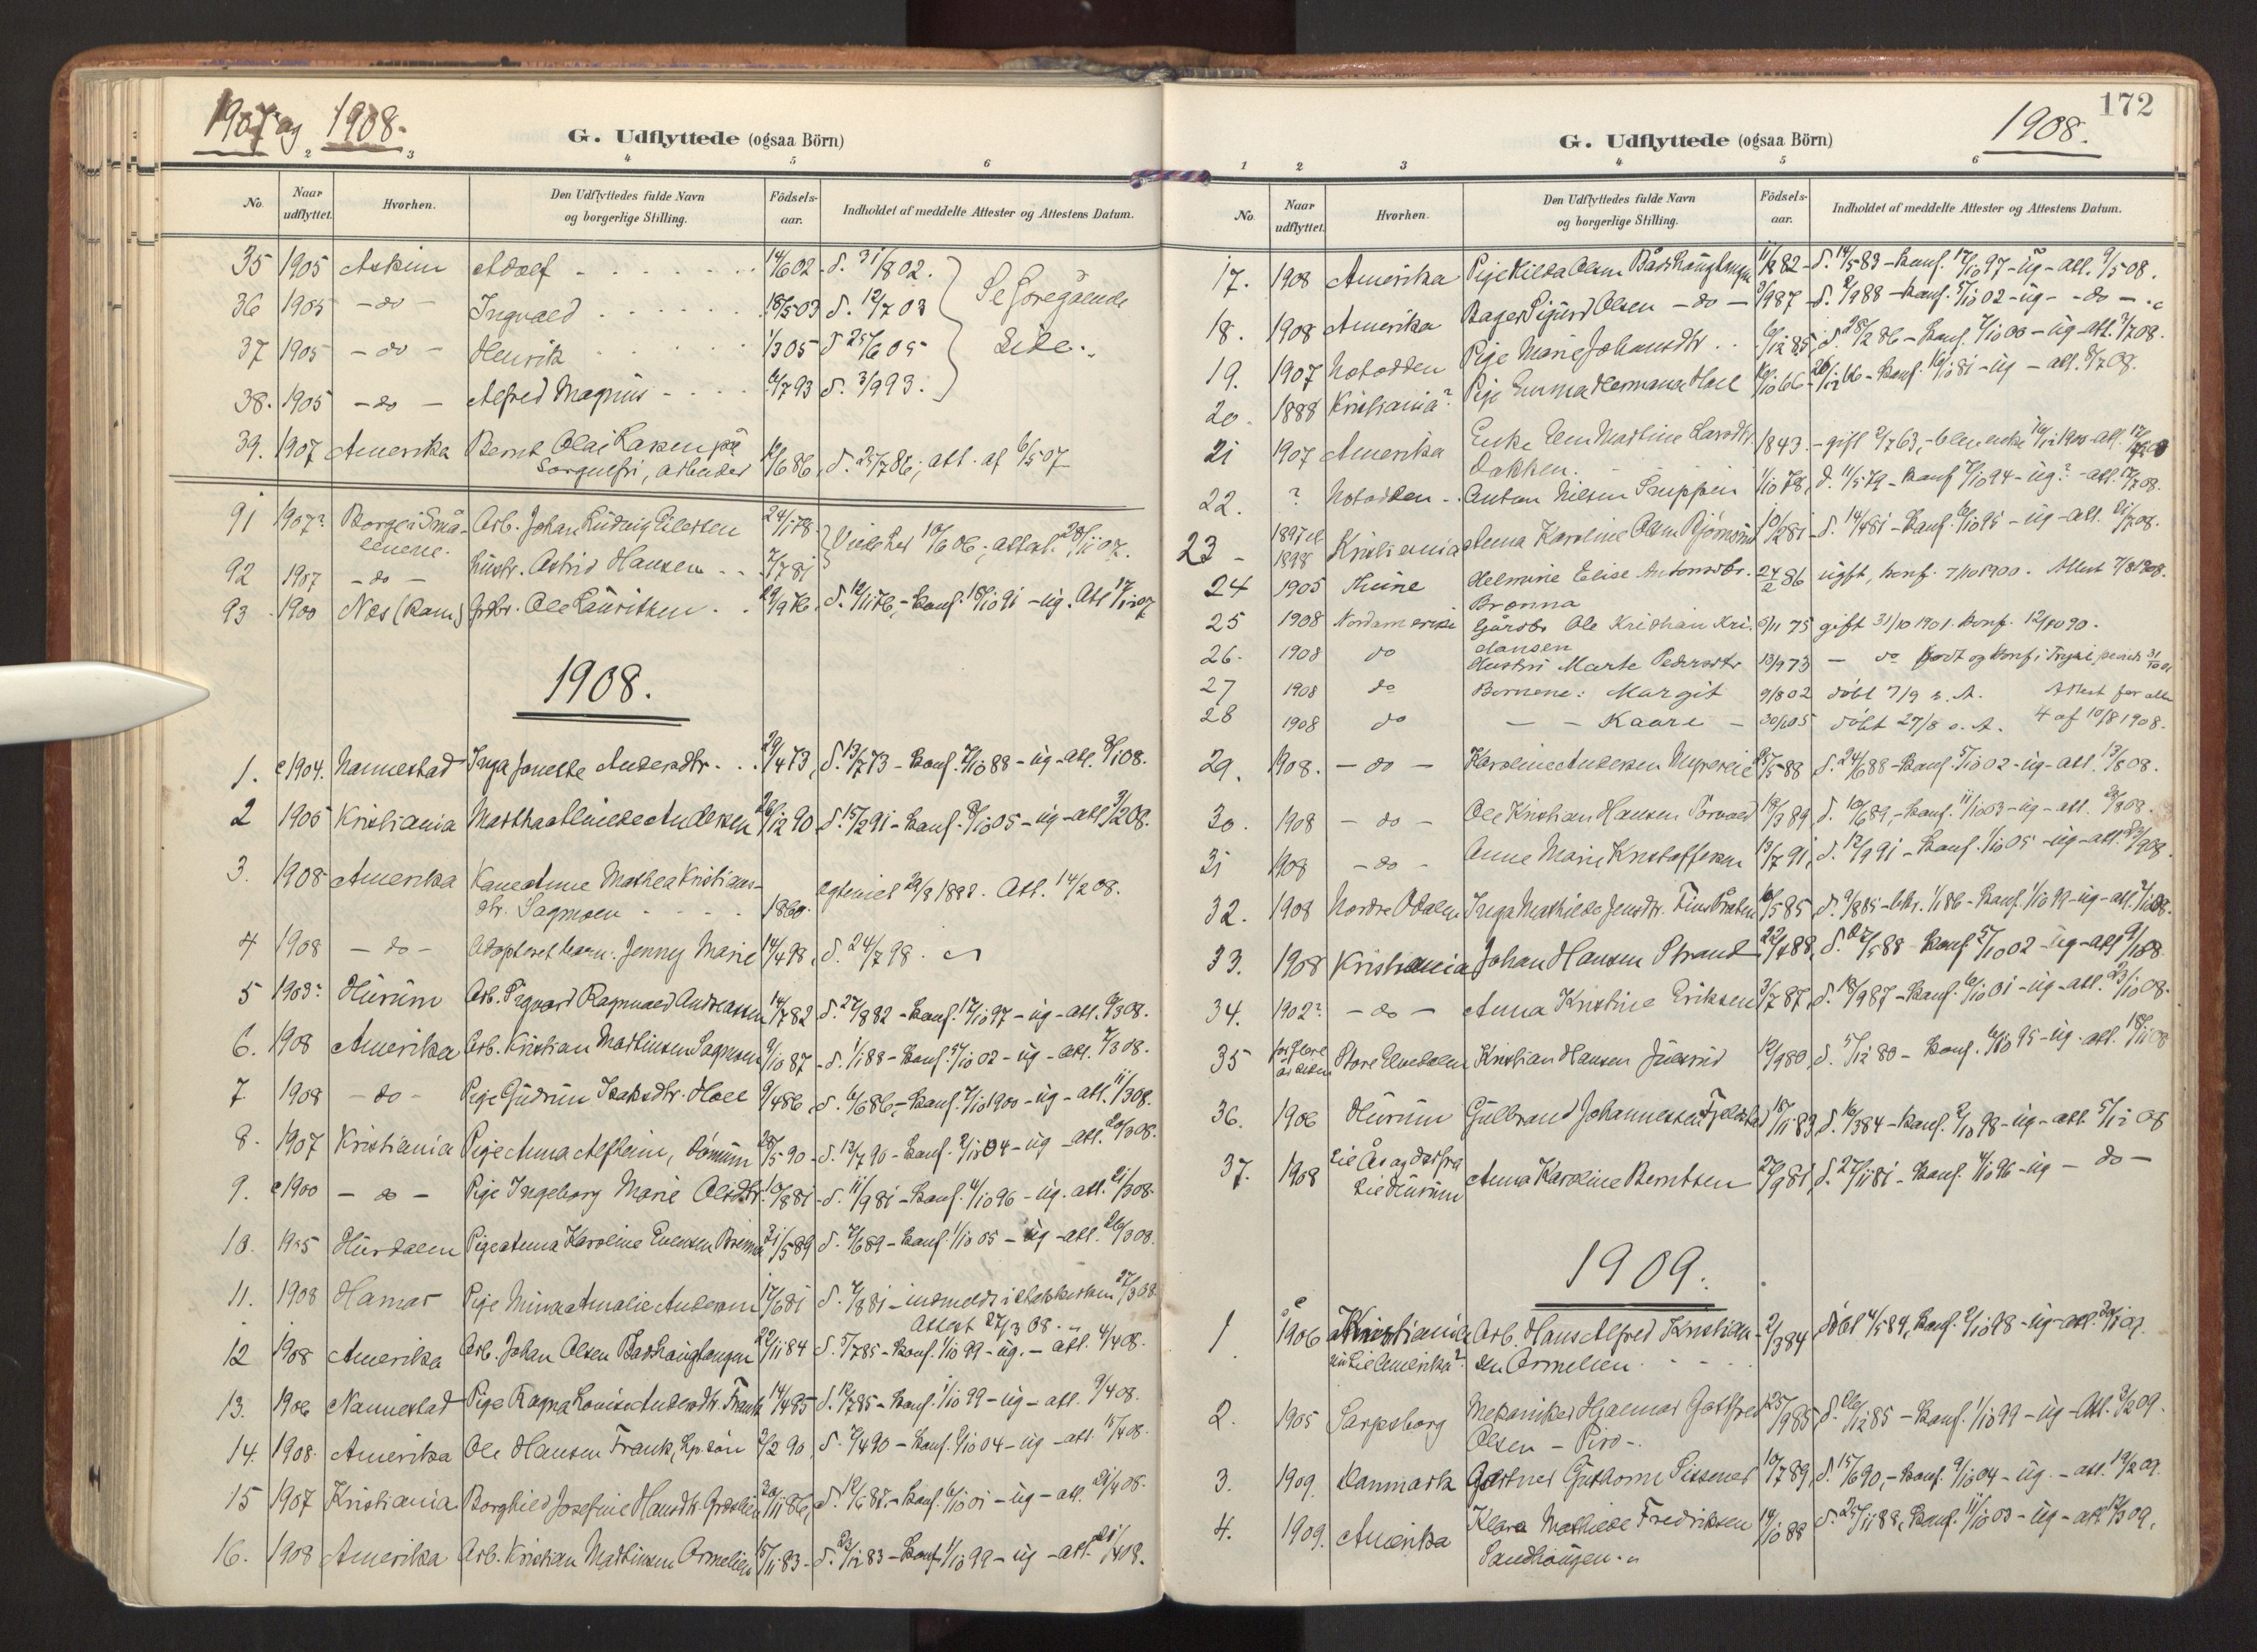 1907 og 1908.
G. Udflyttede (ogsaa Börn)
2 3 4 5 6
No. Naar udflyttet. Hvorhen. Den Udflyttedes fulde Navn og borgerlige Stilling. Födsels-aar. Indholdet af meddelte Attester og Attestens Datum.
35 1905 Askim Adolf 14/6 02 d. 31/8 02.
36 1905 - do - Ingvald 18/5 03 d. 12/7 03 Se foregående
37 1905 - do - Henrik 1/3 05 d 25/6 05 Side.
38. 1905 - do - Alfred Magnus 6/7 93 d. 3/9 93.
39. 1907 Amerika Bernt Olai Larsen på
Sorgenfri, arbeider 12/6 86, d. 25/7 86; att. af 6/5 07
91 1907? Borge i Små- Arb. Johan Ludvig Eilertsen 24/1 78
lenene. Viet her 10/6 06; attest 28/11 07.
92 1907 - do - hustr. Astrid Hansen 7/7 81
93 1900 Nes (Rom.) Grdbr. Ole Lauritsen 29/9 76, d. 12/11 76, - konf. 18/10 91 - ug. Att 17/12 07
1908.
1. c 1904. Nannestad Inga Jonette Andersdtr. 29/4 73, d. 13/7 73 - konf. 7/10 88 - ug - att. 8/1 08.
2 1905 Kristiania Martha Alvilde Andersen 26/12 90 d. 15/2 91 - konf. 8/10 05 - ug - att 3/2 08.
3. 1908 Amerika Kone Anne Mathea Kristians-
dtr. Sagmoen 1860. egteviet 29/3 1888. Att. 14/2 08.
4 1908 - do - Adopteret barn: Jenny Marie 14/4 98, d. 24/7 98.
5 1903? Hurum Arb. Ingvard Ragnvald Andreassen 14/7 82 d. 27/8 82 - konf. 17/10 97 - ug - att. 6/3 08.
6. 1908 Amerika Arb. Kristian Martinsen Sagmoen 9/10 87 - d. 1/1 88 - konf. 5/10 02 - ug - att. 7/3 08.
7. 1908 - do - Pige Gudrun Isaksdtr. Holl 9/4 86, d. 6/6 86, - konf. 7/10 1900 - ug - att. 11/3 08.
8. 1907 Kristiania Pige Anna Alfheim, 28/5 90 - d. 13/7 90 - konf. 2/10 04 - ug - att. 20/3 08.
9. c 1900 - do - Pige Ingeborg Marie Olsdtr. 10/8 81 - d. 11/9 81 - konf. 4/10 96 - ug - att. 21/3 08.
10. 1905 Hurdalen Pige Anna Karoline Evensen 31/5 89 d. 7/6 89 - konf. 1/10 05 - ug - att. 26/3 08.
11. 1908 Hamar Pige Minna Amalie Andersen 17/6 81 d. 7/8 81 - indmeldt i statskirken 27/3 08.
Attest 27/3 08.
12 1908 Amerika Arb. Johan Olsen Bådshaugtangen 22/11 84 d. 5/7 85 - konf. 1/10 99 - ug. - att. 4/4 08.
13. 1906 Nannestad Pige Ragna Lovise Andersdtr. Frank 14/4 85 d. 12/7 85 - konf. 1/10 99 - ug - att. 9/4 08.
14. 1908 Amerika Ole Hansen Frank, Gp. sön 2/2 90, d. 7/4 90 - konf. 2/10 04 - ug - att. 15/4 08.
15 1907 Kristiania Borghild Josefine Hansdtr. 20/11 86, d. 12/6 87. - konf. 6/10 01 - ug - att. 21/4 08.
16. 1908 Amerika Arb. Kristian Martinsen Ormelien 15/11 83 - d. 23/12 83 - konf 1/10 99 - ug - att. 21/4 08.
172
1908.
G. Udflyttede (ogsaa Börn)
1 2 3 4 5 6
No. Naar udflyttet. Hvorhen. Den Udflyttedes fulde Navn og borgerlige Stilling. Födsels-aar. Indholdet af meddelte Attester og Attestens Datum.
17. 1908 Amerika Pige Hilda Olsen Bådshaugtangen 11/12 82 - d. 14/5 83 - konf. 17/10 97 - ug - att. 9/5 08.
18. 1908 Amerika Bager Sigurd Olsen - do - 3/9 87 - d. 2/9 88 - konf. 5/10 02 - ug - do -
19. 1907 Notodden Pige Marie Johansdtr. 6/12 85, d. 28/2 86 - konf. 7/10 00 - ug - att. 3/7 08.
20. 1888 Kristiania? Pige Emma Hermana Holl 20/10 66 - 26/12 66 - konf. 16/10 81 - ug - att. 8/7 08.
21 1907 Amerika Enke Elen Martine Larsdtr. 1843. - gift 2/7 63, - blev enke 16/12 1900 - att. 17/7 08
Bakken.
22. ? Notodden Anton Nilsen 1/10 78, d. 11/5 79 - konf 7/10 94 - ug? - att. 17/7 08.
23 - 1897 el 1898 Kristiania Anna Karoline Olsen 10/2 81 - d. 14/4 81 - konf. 6/10 95 - ug - att. 21/7 08.
24 1905 Thune Helmine Elise Antonsdtr. 24/2 86 ugift, konf. 7/10 1900. Attest 7/8 1908.
Brønna
25 1908 Nordamerika Gårdbr Ole Kristian Kri- 9/11 75 gift 31/10 1901. Konf. 12/10 90.
stiansen
26. 1908 do Hustru Marte Pedersdtr 13/9 73 - do Født og konf i Trysil
27 1908 do Børnene: Margit 9/8 02 døbt 7/9 s. A. Attest for alle
28 1908 do - - Kaare - 30/6 05 døbt 27/8 s. A. 4 af 10/8 1908.
29. 1908. - do - Karoline Andersen 25/5 88 d. 24/6 88 - konf. 5/10 02 - ug - att. 13/8 08.
30. 1908 - do - Ole Kristian Hansen 19/3 89 d. 10/6 89, - konf. 11/10 03 - ug - att. 21/8 08.
31 1908 - do - Anne Marie Kristoffersen 13/7 91, d. 12/9 91 - konf. 1/10 05 - ug - att. 23/9 08.
32. 1908 Nordre Odalen Inga Mathilde Jensdtr. 16/5 85 d. 9/8 85 - bkr. 1/1 86 - konf. 1/10 99 - ug - att. 7/10 08.
33. 1908 Kristiania Johan Hansen Strand 22/4 88, d. 27/5 88 - konf 5/10 02 - ug - att 9/10 08.
34. 1902? - do - Anna Kristine Eriksen 3/7 87, d. 18/9 87 - konf. 6/10 01 - ug - att. 23/10 08.
35 for flere år siden Store Elvedalen Kristian Hansen Julsrud 12/9 80, d. 5/12 80 - konf. 6/10 95 - ug - att. 18/11 08
36. 1906 Hurum Gulbrand Johannessen Fjeldstad 18/11 83, d. 16/3 84 - konf. 2/10 98 - ug - att. 5/12 08
37. 1908 til Ås og derfra
til Hurum Anna Karoline Berntsen 27/9 81, d. 27/11 81 - konf. 4/10 96 - ug - do -
1909.
1. 1906 Kristiania Arb. Hans Alfred Kristian- 2/3 84 døbt 4/5 84, konf. 2/10 98 - ug - att. 20/1 09.
nu til Amerika? sen Ormelien.
2. 1905 Sarpsborg Mekaniker Hjalmar Gotfred 25/9 85 d. 26/12 85 - konf. 1/10 99 - ug - att. 3/2 09.
Olsen - Piro -
3. 1909. Danmark Gartner Guthorm Sissener 10/7 89, d. 15/6 90, - konf. 9/10 04 - ug. - att. 19/2 09.
4. 1909. Amerika Klara Mathilde Fredriksen 14/10 88 d. 25/11 88, konf. 11/10 03 - ug - att. 12/3 09.
Sandhaugen.